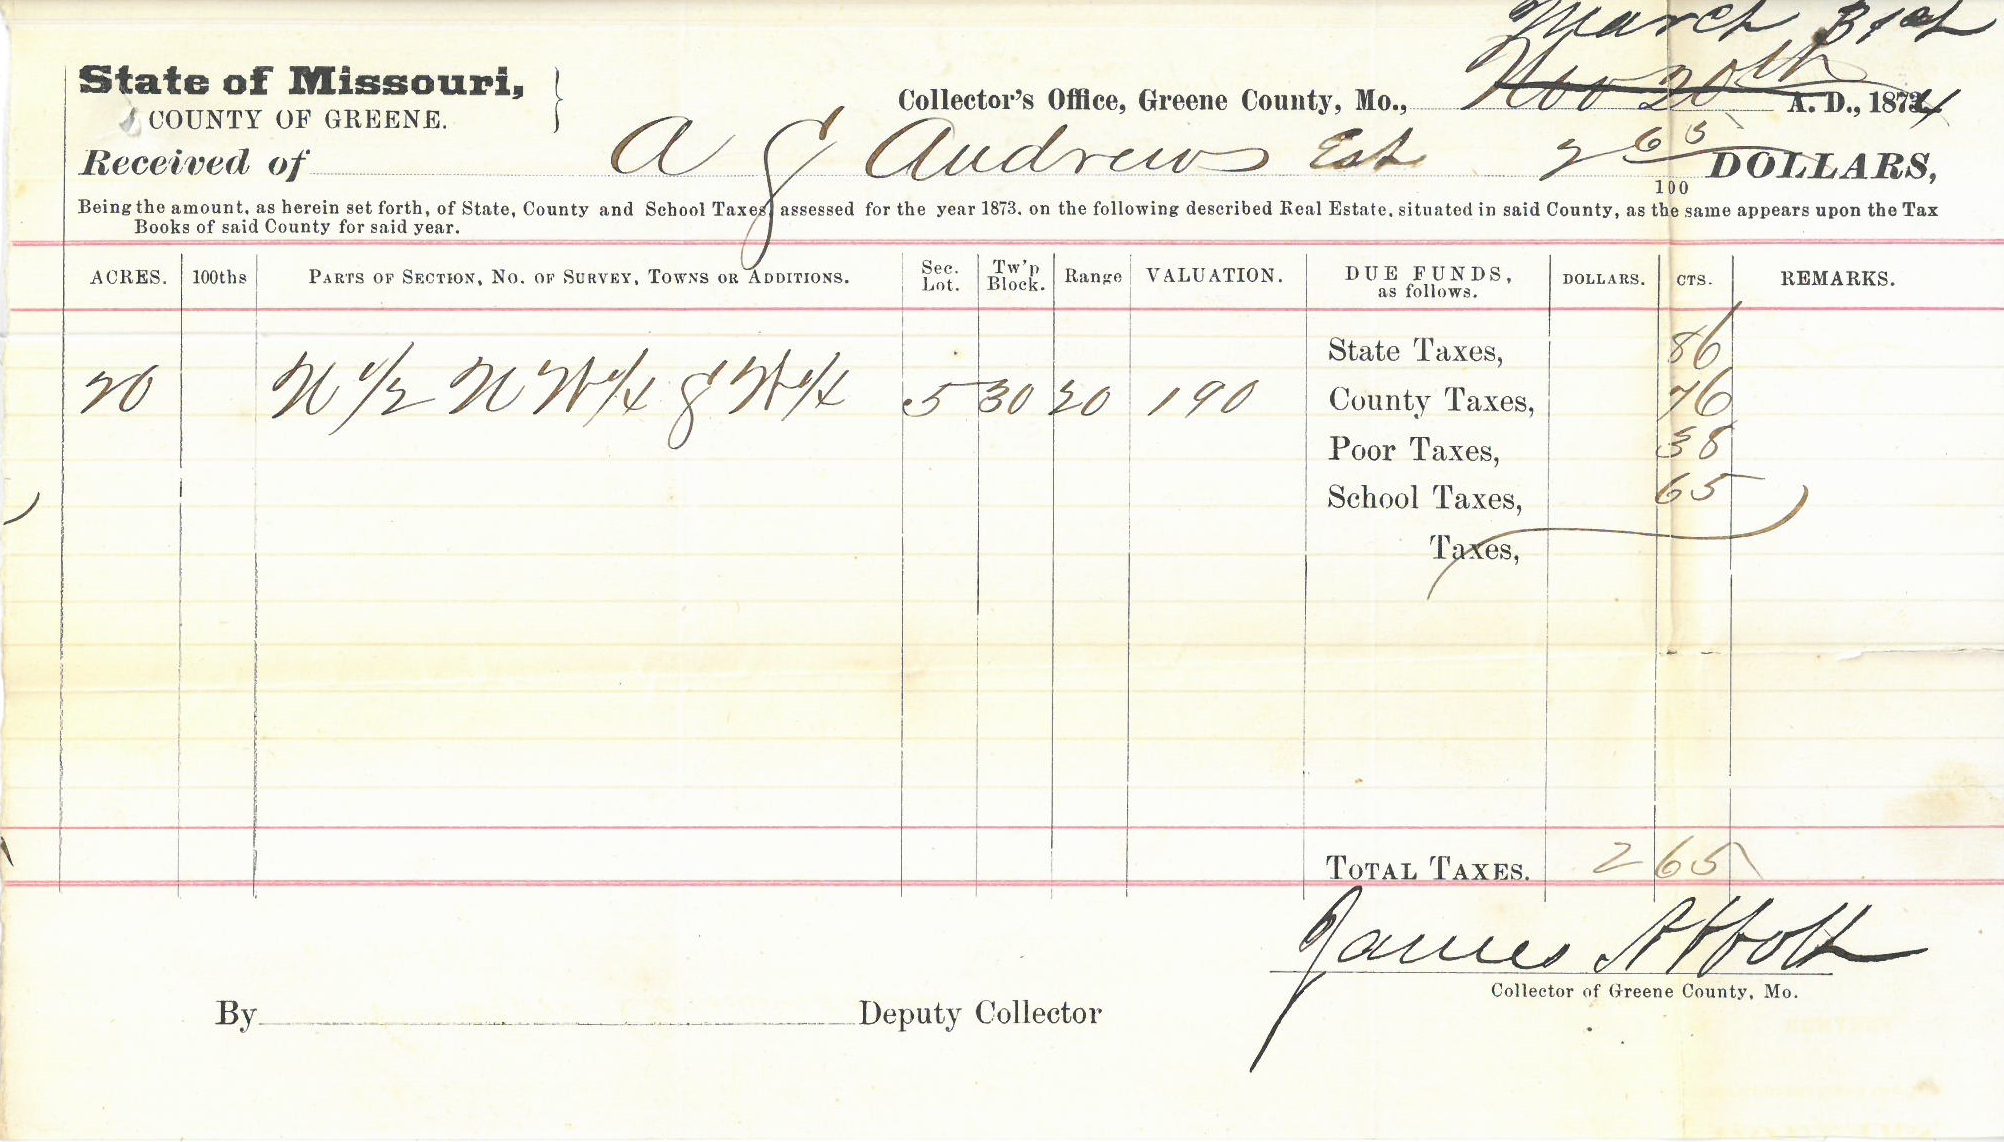 March 31st
State of Missouri,
COUNTY OF GREENE.
Collector's Office, Greene County, Mo., Nov 20th A. D., 1874
Received of A J Andrews Est 2 65/100 DOLLARS,
Being the amount, as herein set forth, of State, County and School Taxes, assessed for the year 1873, on the following described Real Estate, situated in said County, as the same appears upon the Tax
Books of said County for said year.
ACRES. 100ths PARTS OF SECTION, NO. OF SURVEY, TOWNS OR ADDITIONS. Sec. Lot. Tw'p Block. Range VALUATION. DUE FUNDS, as follows. DOLLARS. CTS. REMARKS.
State Taxes, 86
20 N 1/2 N W 1/4 S W 1/4 5 30 20 190 County Taxes, 76
Poor Taxes, 38
School Taxes, 65
Taxes,
TOTAL TAXES. 2 65
James Abbott
Collector of Greene County, Mo.
By Deputy Collector